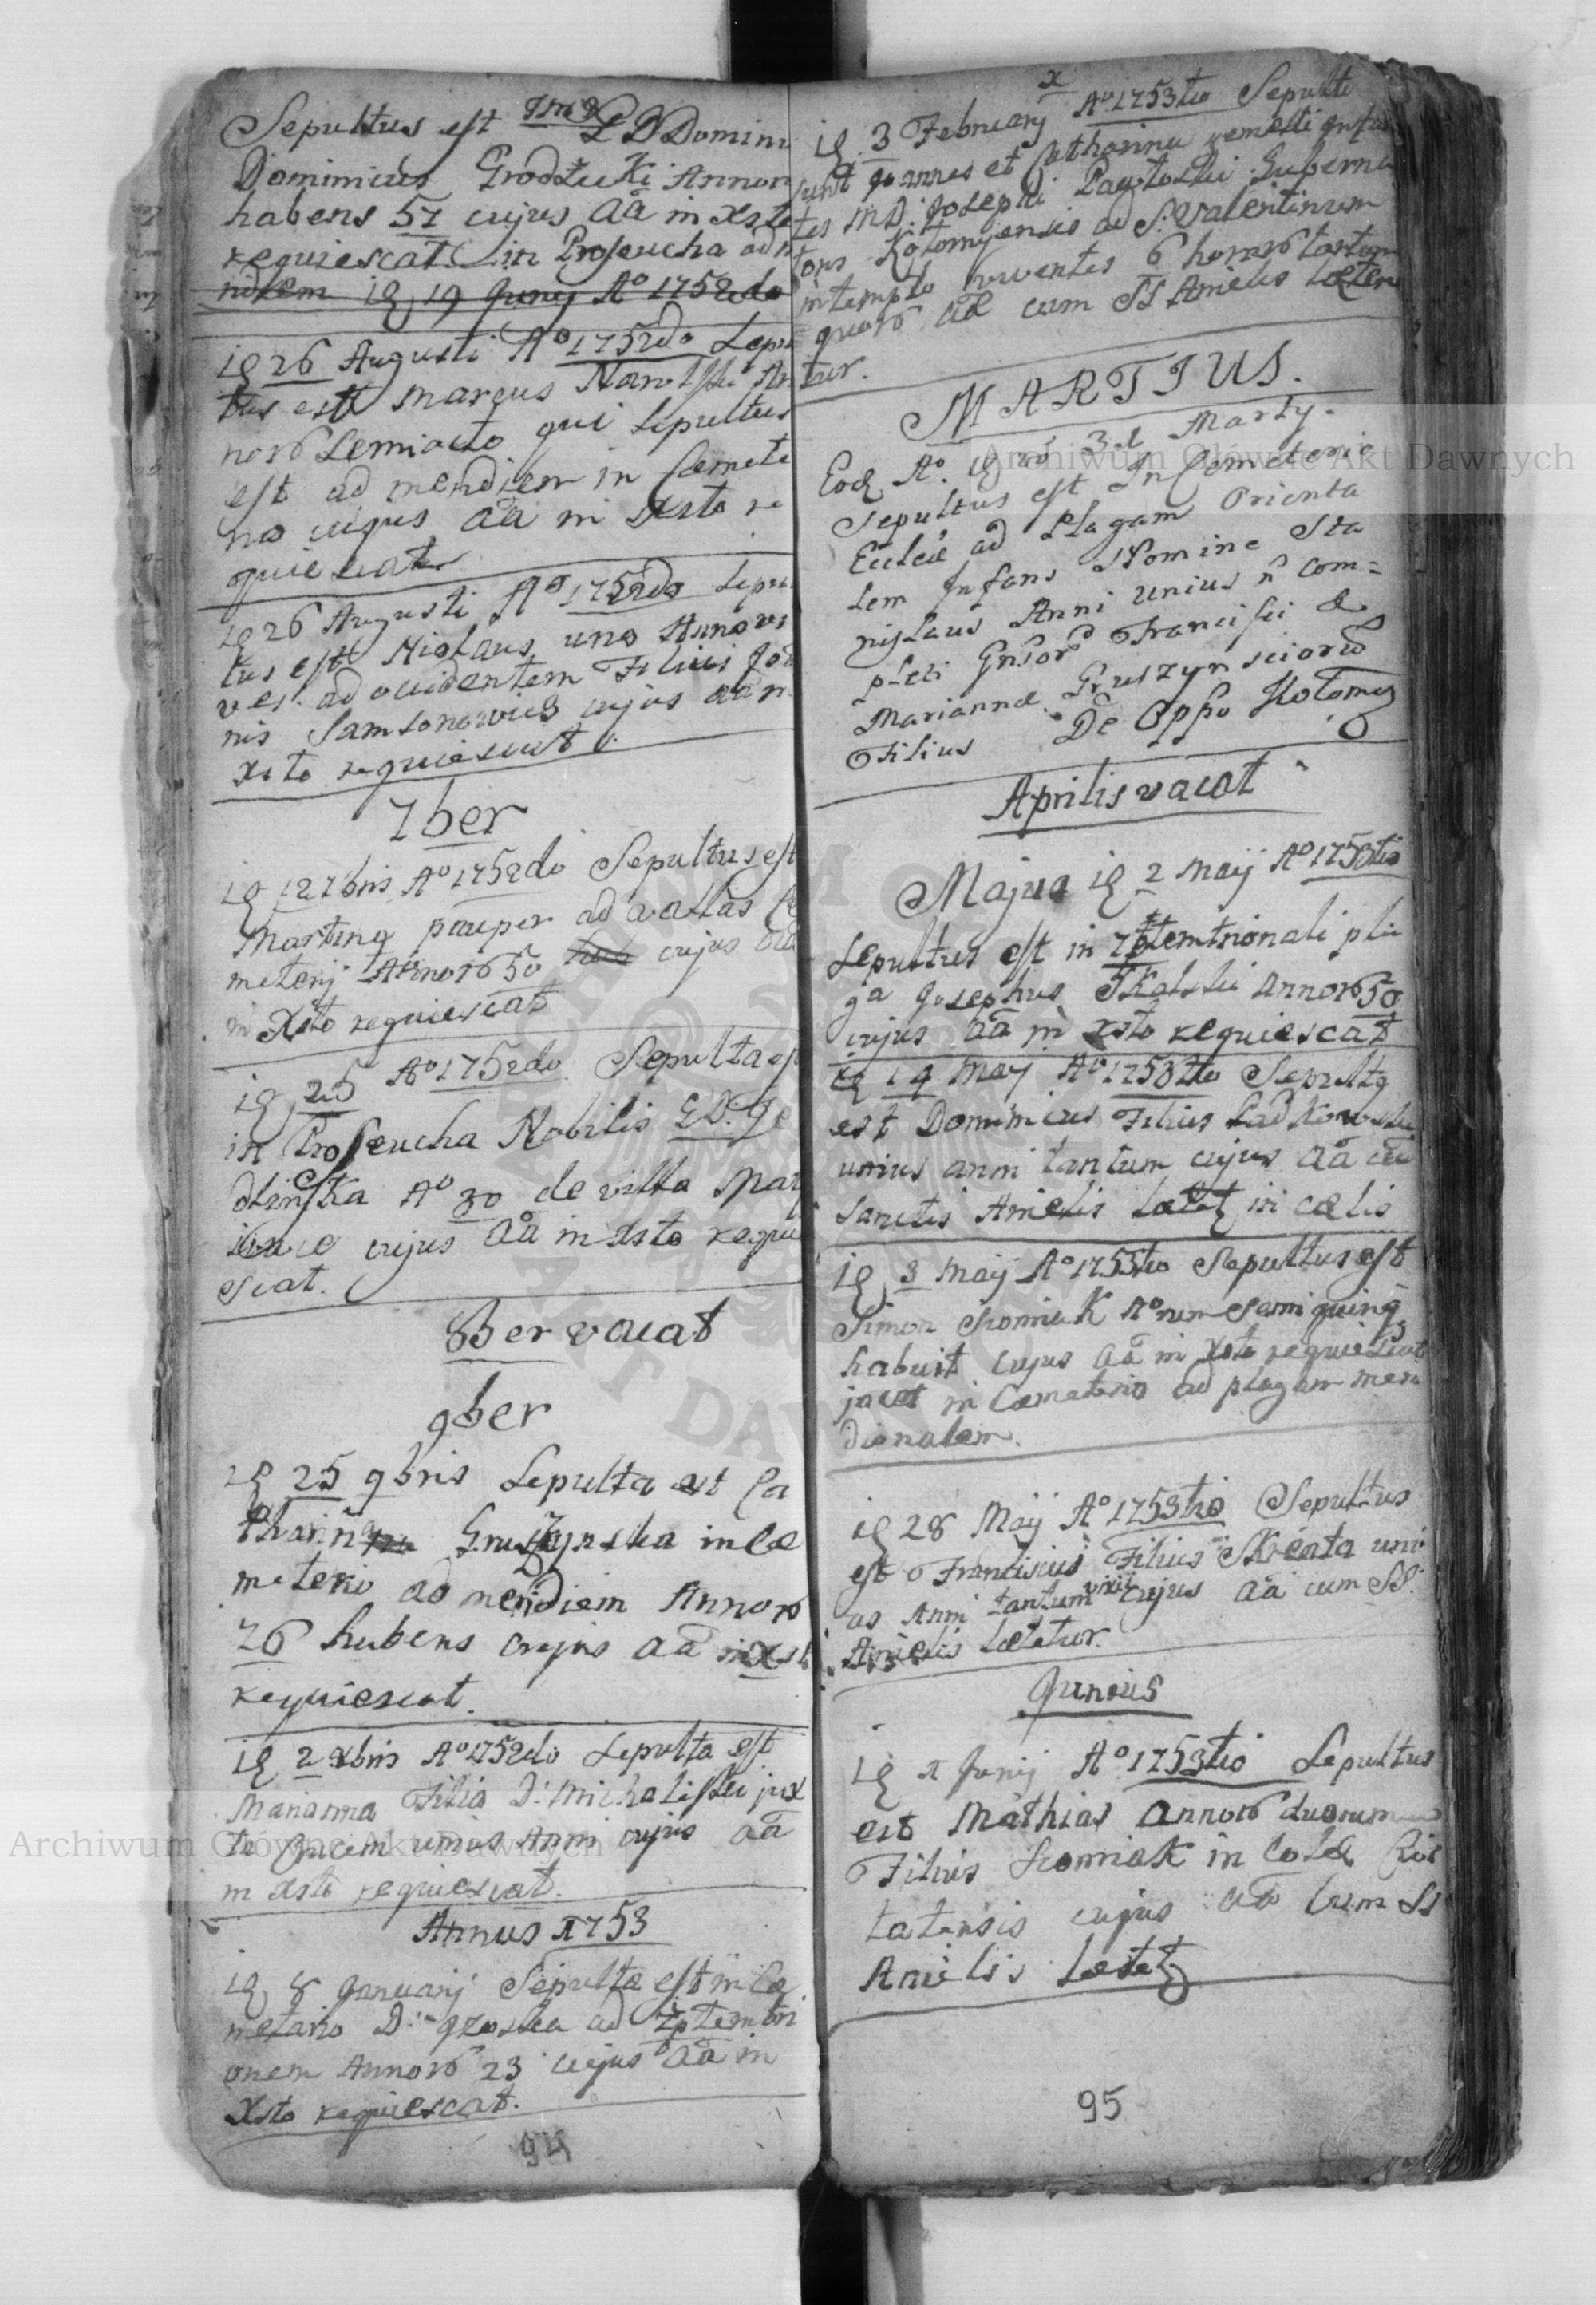 Sepultus est Gnis L D Domin
Dominicus Grodzicki Annor
habens 57 cujus aã in Xsto
requiescat in Proseucha ad
19 Junij Aº 1752do
ię 26 Augusti Aº 1752do Sepu
tus est Marcus An
noró Semiocto qui Sepultus
est ad meridiem in Cæmete
rio cujus aã in Xsto re
quiescat
ię 26 Augusti Aº 1752do Sepul
tus est Niolaus uno Anno vi
ves ad occidentem Filius Joa
nis Samsonowicz cujus aã in
Xsto requiescat
7ber
ię 12 7bris Aº 1752do Sepultus est
Marting pauper ad valvas Cæ
meterij Annoró 50 cujus aã
in Xsto requiescat
ię 25 Aº 1752do Sepulta est
in Proseucha Nobilis G.D. Ję
dlinska Aº 30 de villa Mat
cujus aã in Xsto requi
escat.
8ber vacat
9ber
ię 25 9bris Sepulta est Ca
tharina Gruszynska in Cæ
meterio ad meridiem Annoró
26 habens cujus aã in Xsto
requiescat.
ię 2 Xbris Aº 1752do Sepulta est
Marianna Filia D: Michaliski jux
ta Crucem unius Anni cujus aã
in Xsto requiescat.
Annus 1753
ię 8 Januarij Sepulta est in Cæ
meterio D: ad 7ptemtri
onem Annoró 23 cujus aã in
Xsto requiescat.
94
x
ię 3 February Aº 1753tio Sepulti
sunt Joannes et Catharina gemelli Infan
tes M D: Josephi Guberna
toris Kołomyensis ad S: Valentinum
in templo viventes 6 horas tantum
quoró aæ cum SS Amelis læten
tur.
MARTIUS.
Eod Aº. ię 3 Martij
Sepultus est In Cemeterio
Eccleæ ad Plagam Orienta
lem Infans Nomine Sta
nislaus Anni unius ñ com=
pleti Gnsor Francisci &
Mariannæ Gruszynsciorú
Filius De Oppo Kołomy
Aprilis vacat
Majus ię 2 Maij Aº 1753tio
Sepultus est in 7ptemtrionali pla
ga Josephus Skalski Annoró 50
cujus aã in Xsto requiescat
ię 14 Maij Aº 1753tio Sepultg
est Dominicus Filius Ladkowski
unius anni tantum cujus aã cũ
Sanctis Amelis lætet in cælis
ię 3 Maij Aº 1753tio Sepultus est
Simon Słomiak Aºrum semi quinq
habuit cujus aã in Xsto requiescat
jacet in Cæmeterio ad plagam meri
dionalem.
ię 28 Maij Aº 1753tio Sepultus
est Franciscus Filius Skrenta uni
us Anni tantum vixit cujus aã cum SS.
Amelis lætetur.
Junius
ię 1 Junij Aº 1753tio Sepultus
est Mathias annoró duorum
Filius Słomiak in Colã Civi
tatensis cujus aã Cum SS
Amelis lætetz
95
Archiwum Główne Akt Dawnych
Archiwum Główne Akt Dawnych